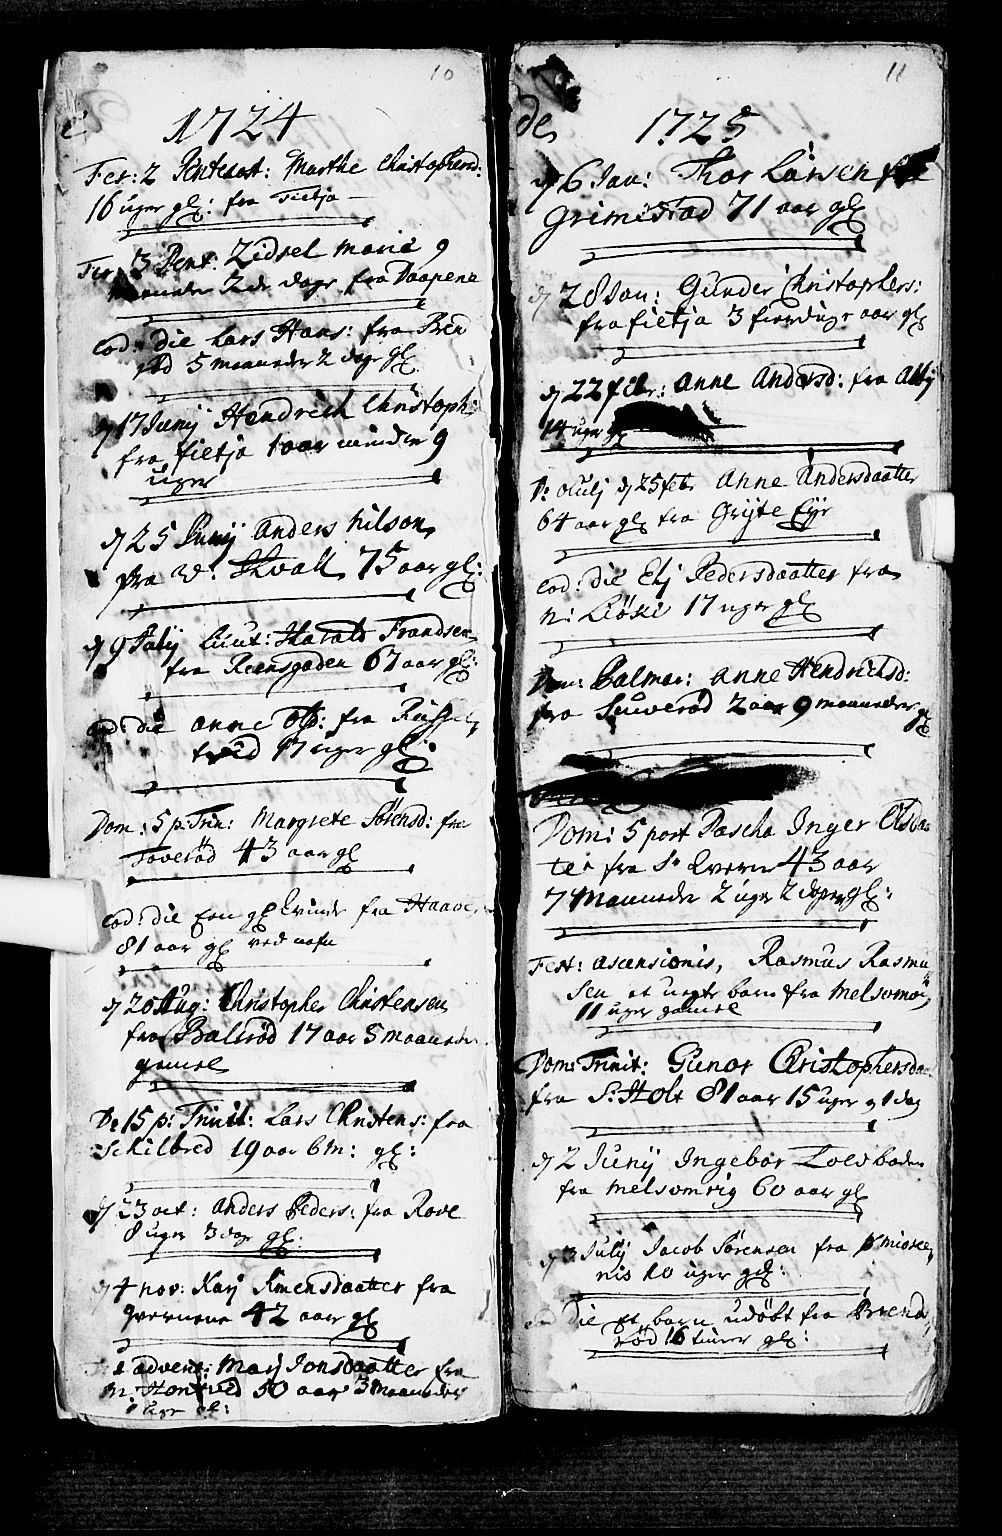 10
1724
Fer: 2 Pentecost: Marthe Christophersd:
16 uger gl: fra Fietja
Fer: 3 Pent: Zidsel Maria 9
maaneder 2de dage fra Daapene
eod: die Lars Hans: fra Bren
rød 5 maaneder 2 dage gl
d 17 Junij Hendrich Christoph:
fra fietja 1 aar minder 9
uger
d 25 Junij Anders Nilson
fra W: Skvatt 75 aar gl:
d 9 July Liut: Harald Frandsen
fra Reensgaden 67 aar gl:
eod: die Anne Ols: fra
tvied 17 uger gl:
Dom: 5 p: Trin: Margrete Sørensd: fra
Toverød 43 aar gl
eod: die Een gl kvinde fra Haave
81 aar gl ved nafn
d 20 Aug: Christopher Christensen
fra Balsrød 17 aar 5 maaneder
gamel
De 15 p: Trinit: Lars Christens: fra
Schilbred 19 aar 6 m: gl:
d 23 oct: Anders Peders: fra Rove
8 uger 3 dage gl:
d 4 nov: Karj Simensdaatter fra
Qvernene 42 aar gl
advent: Marj Jonsdaatter fra
N: Hontvied 50 aar 3 maaneder
1 uge gl:
11
de
1725
d 6 Jan: Thor Larsen fra
Grimestad 71 aar gl
d 28 Jan: Gunder Christophers:
fra fietja 3 fierduge aar gl
d 22 febr: Anne Andersd: fra Alby
14 uger gl
D: Oculj d 25 feb: Anne Andersdaatter
64 aar gl fra Gryte Eyr
eod: die Elj Pedersdaatter fra
N: Liøse 17 uger gl
Dom: Palmar: Anne Hendrichsd:
fra Siuverød 2 aar 9 maaneder gl
Dom: 5 post Pascha Inger Olsdat
ter fra S: Qverne 43 aar
7 Maaneder 2 uger 2 dage gl:
Fest: Ascensionis, Rasmus Rasmu
sen et uægte barn fra Melsomvig
11 uger gamel
Dom: Trinit: Gunor Christophersda
fra S: Holt 81 aar 15 uger 1 dag
d 2 Junij Ingebor
fra Melsomvig 60 aar gl
d 3 July Jacob Sørensen fra
nis 10 uger gl:
eod die et barn udøbt fra Brend
rød 16 timer gl: